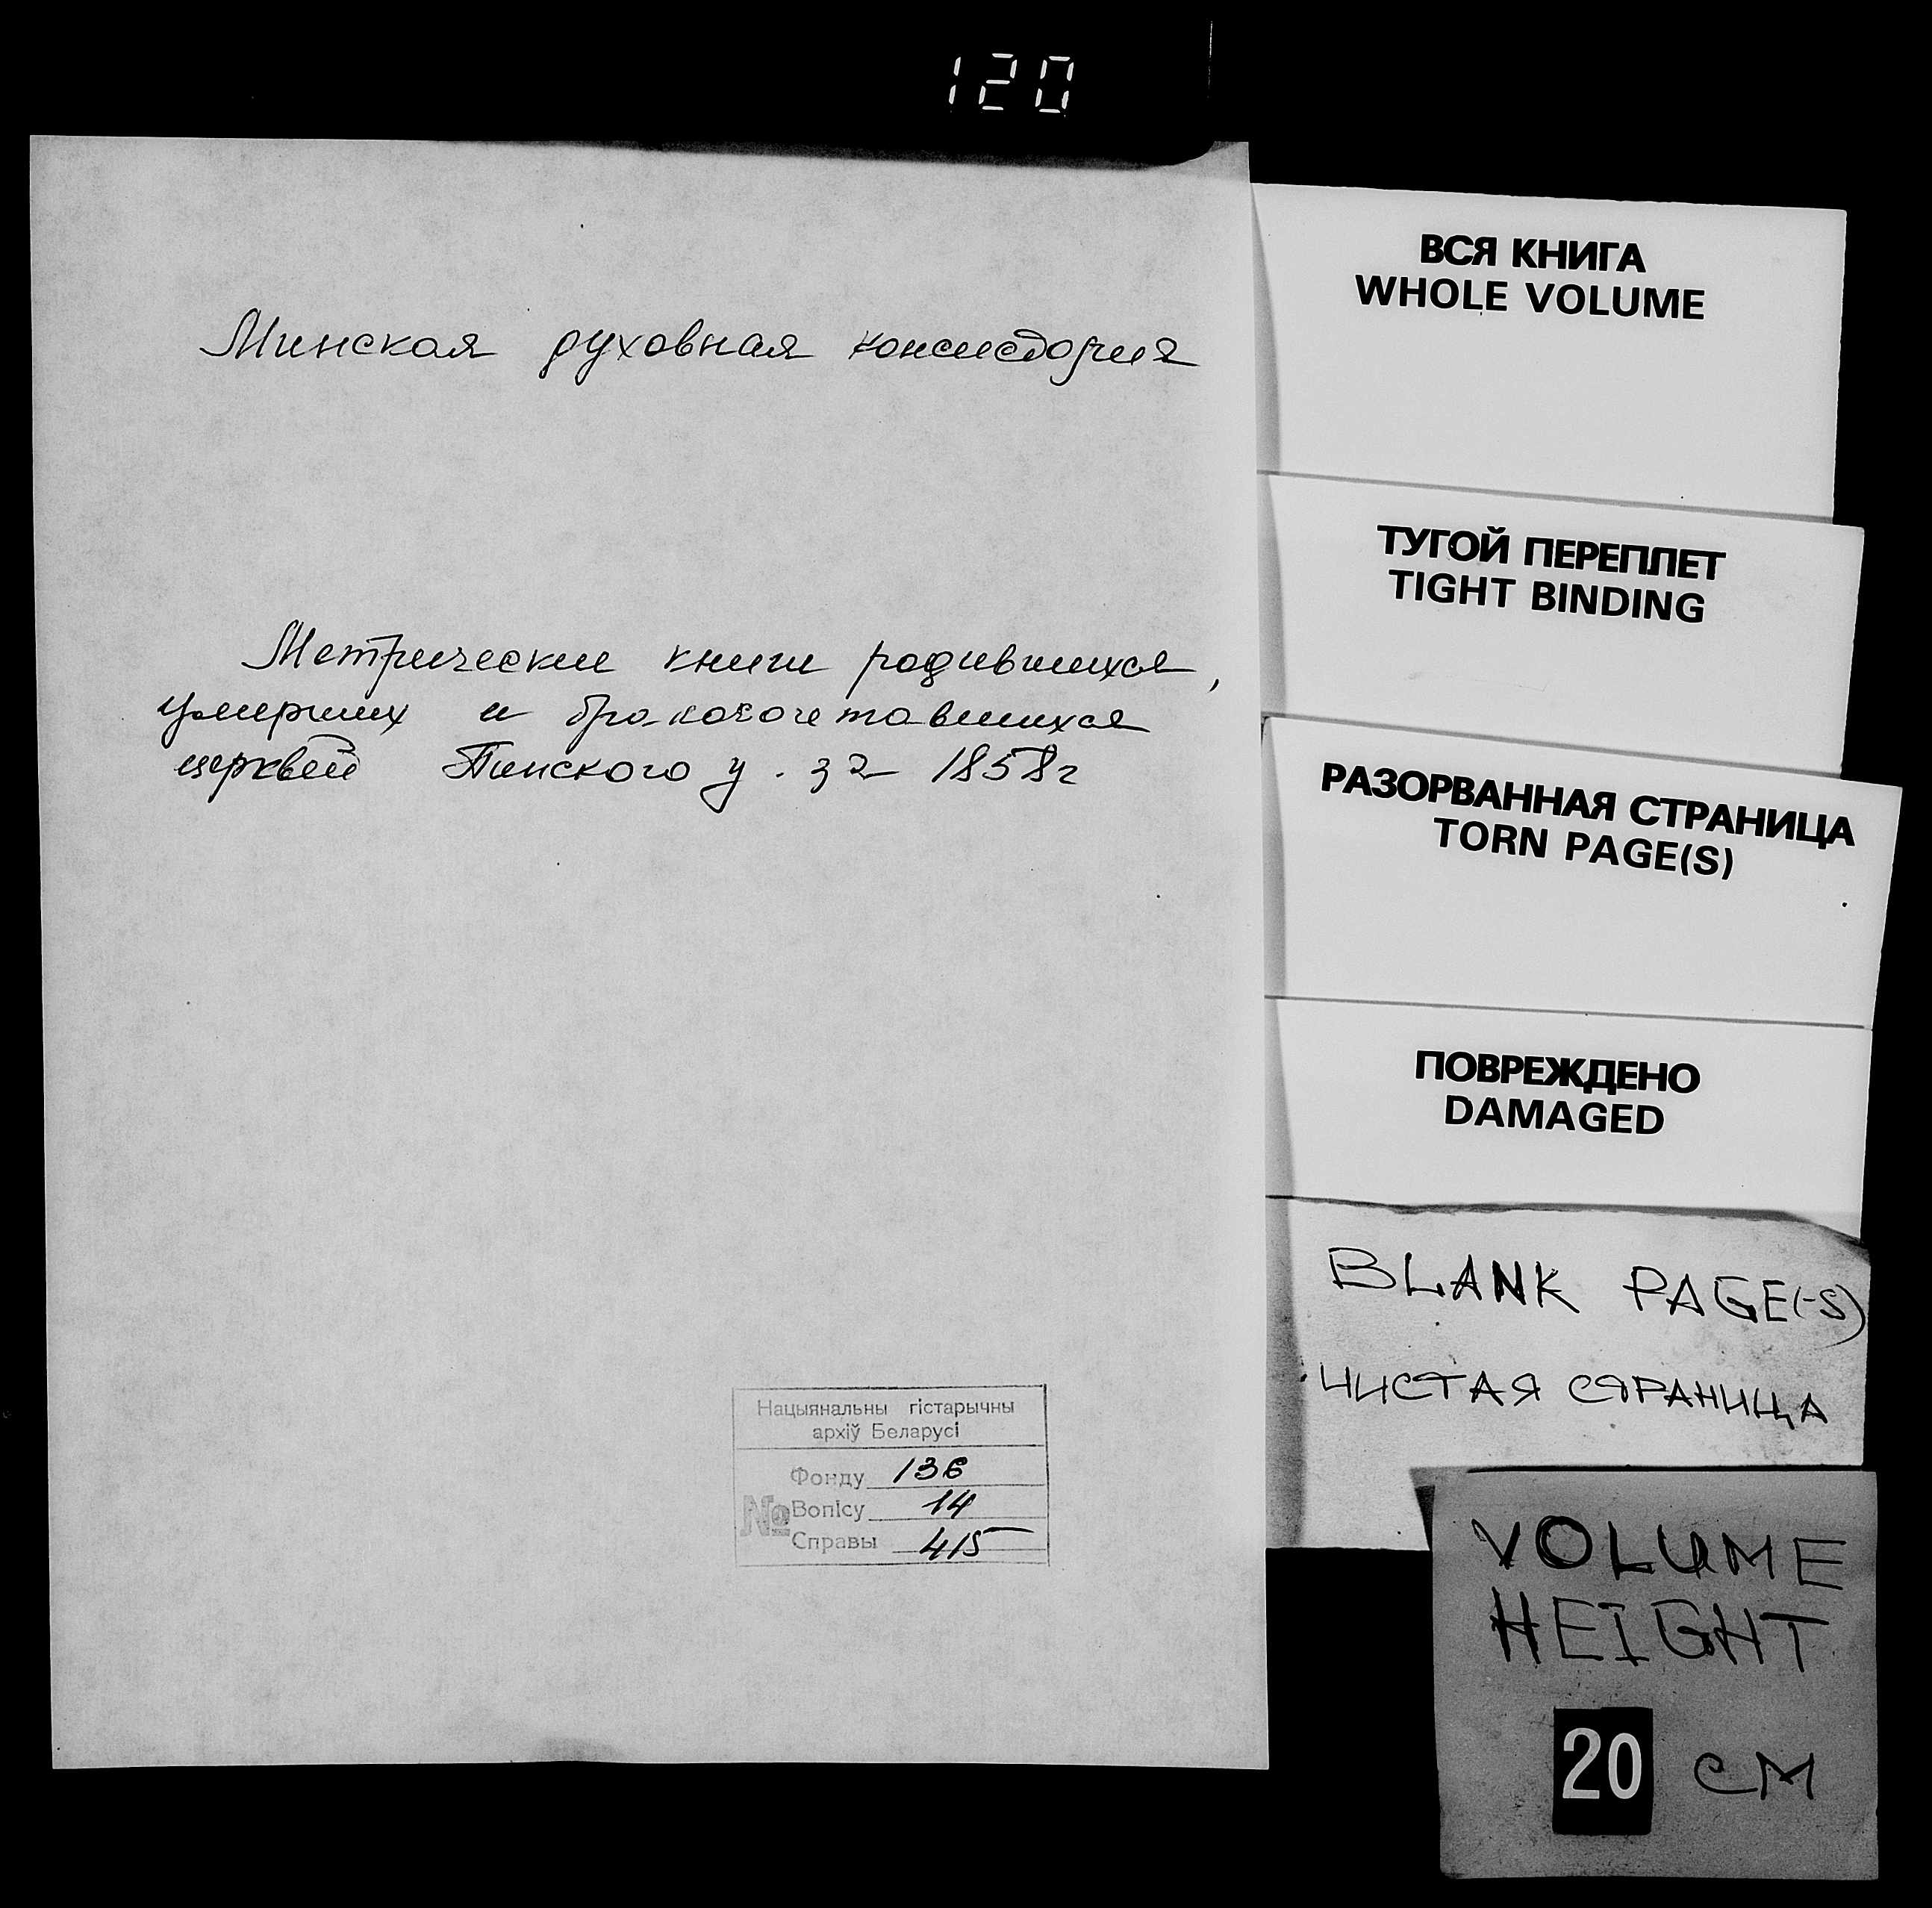 120
Минская духовная консистория
Метрические книги родившихся,
умерших и бракосочетавшихся
церквей Пинского у. за 1858г
Нацыянальны гістарычны
архіў Беларусі
Фонду 136
№ Вопісу 14
Справы 415
ВСЯ КНИГА
WHOLE VOLUME
ТУГОЙ ПЕРЕПЛЕТ
TIGHT BINDING
РАЗОРВАННАЯ СТРАНИЦА
TORN PAGE(S)
ПОВРЕЖДЕНО
DAMAGED
BLANK PAGE(-S)
ЧИСТАЯ СТРАНИЦА
VOLUME
HEIGHT
20 СМ